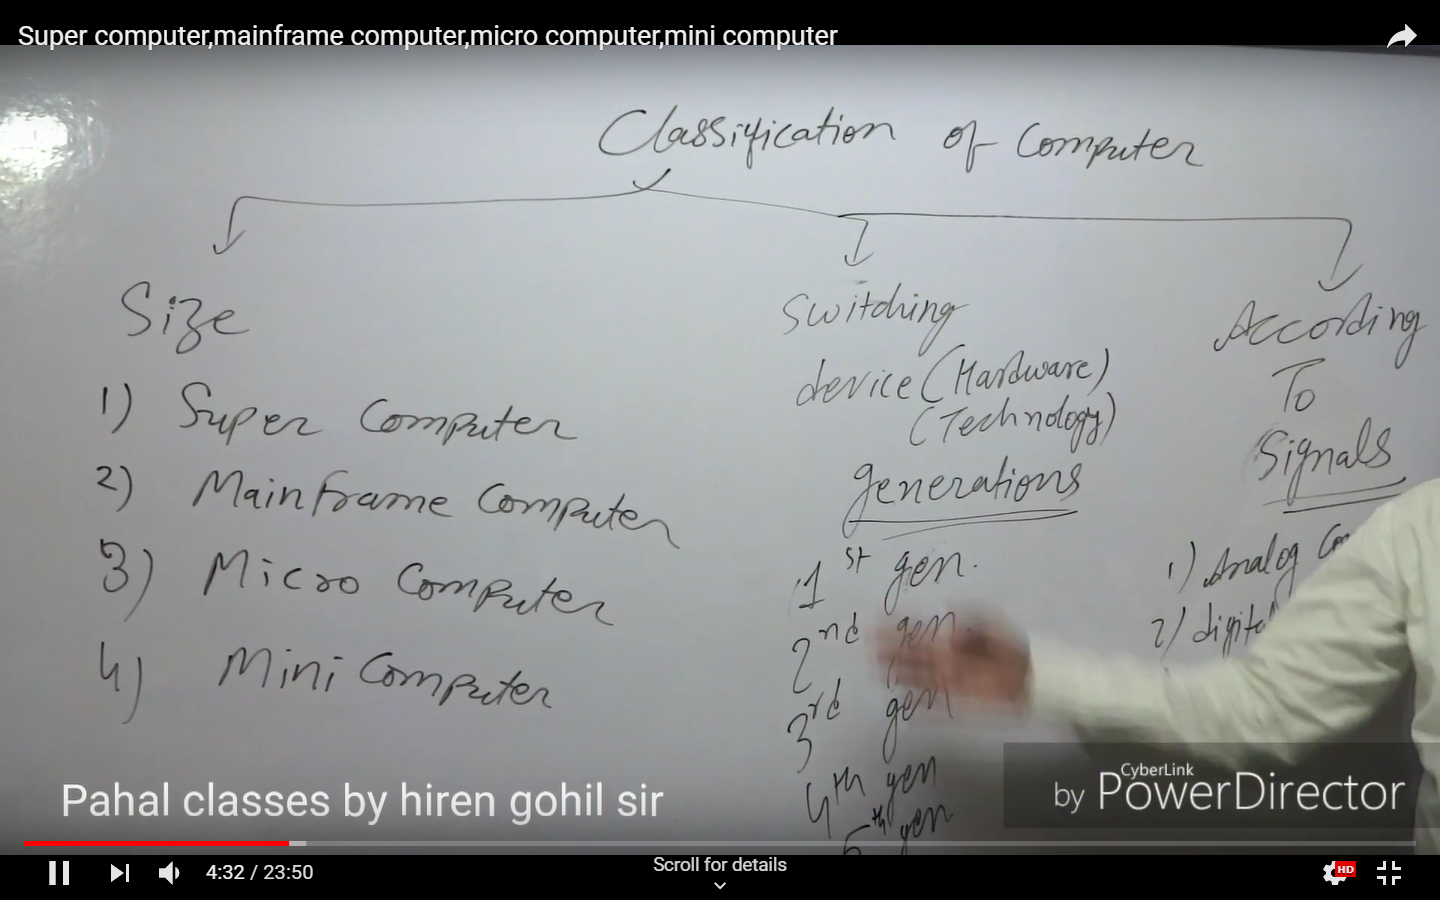 Super computer,mainframe computer,micro computer,mini computer
Classification of Computer
Size
1) Super Computer
2) Mainframe Computer
3) Micro Computer
4) Mini Computer
Switching
device (Hardware)
(Technology)
generations
1st gen.
2nd gen.
3rd gen
4th gen
5th gen
According
To
Signals
1) Analog
2) digital
Pahal classes by hiren gohil sir
by CyberLink PowerDirector
4:32 / 23:50
Scroll for details
HD